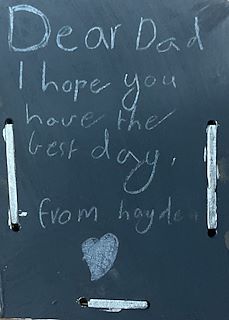 Dear Dad
I hope you
have the
best day.
from hayden